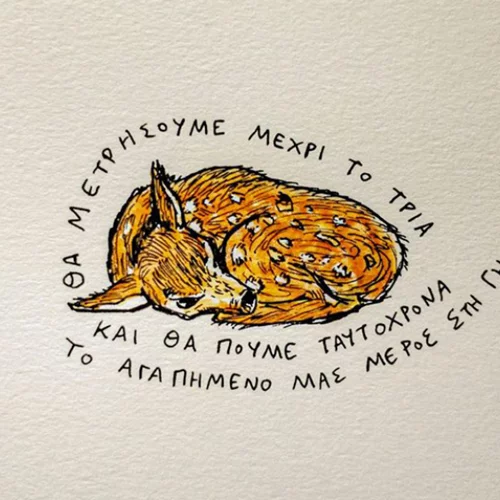 ΘΑ ΜΕΤΡΗΣΟΥΜΕ ΜΕΧΡΙ ΤΟ ΤΡΙΑ
ΚΑΙ ΘΑ ΠΟΥΜΕ ΤΑΥΤΟΧΡΟΝΑ
ΤΟ ΑΓΑΠΗΜΕΝΟ ΜΑΣ ΜΕΡΟΣ ΣΤΗ